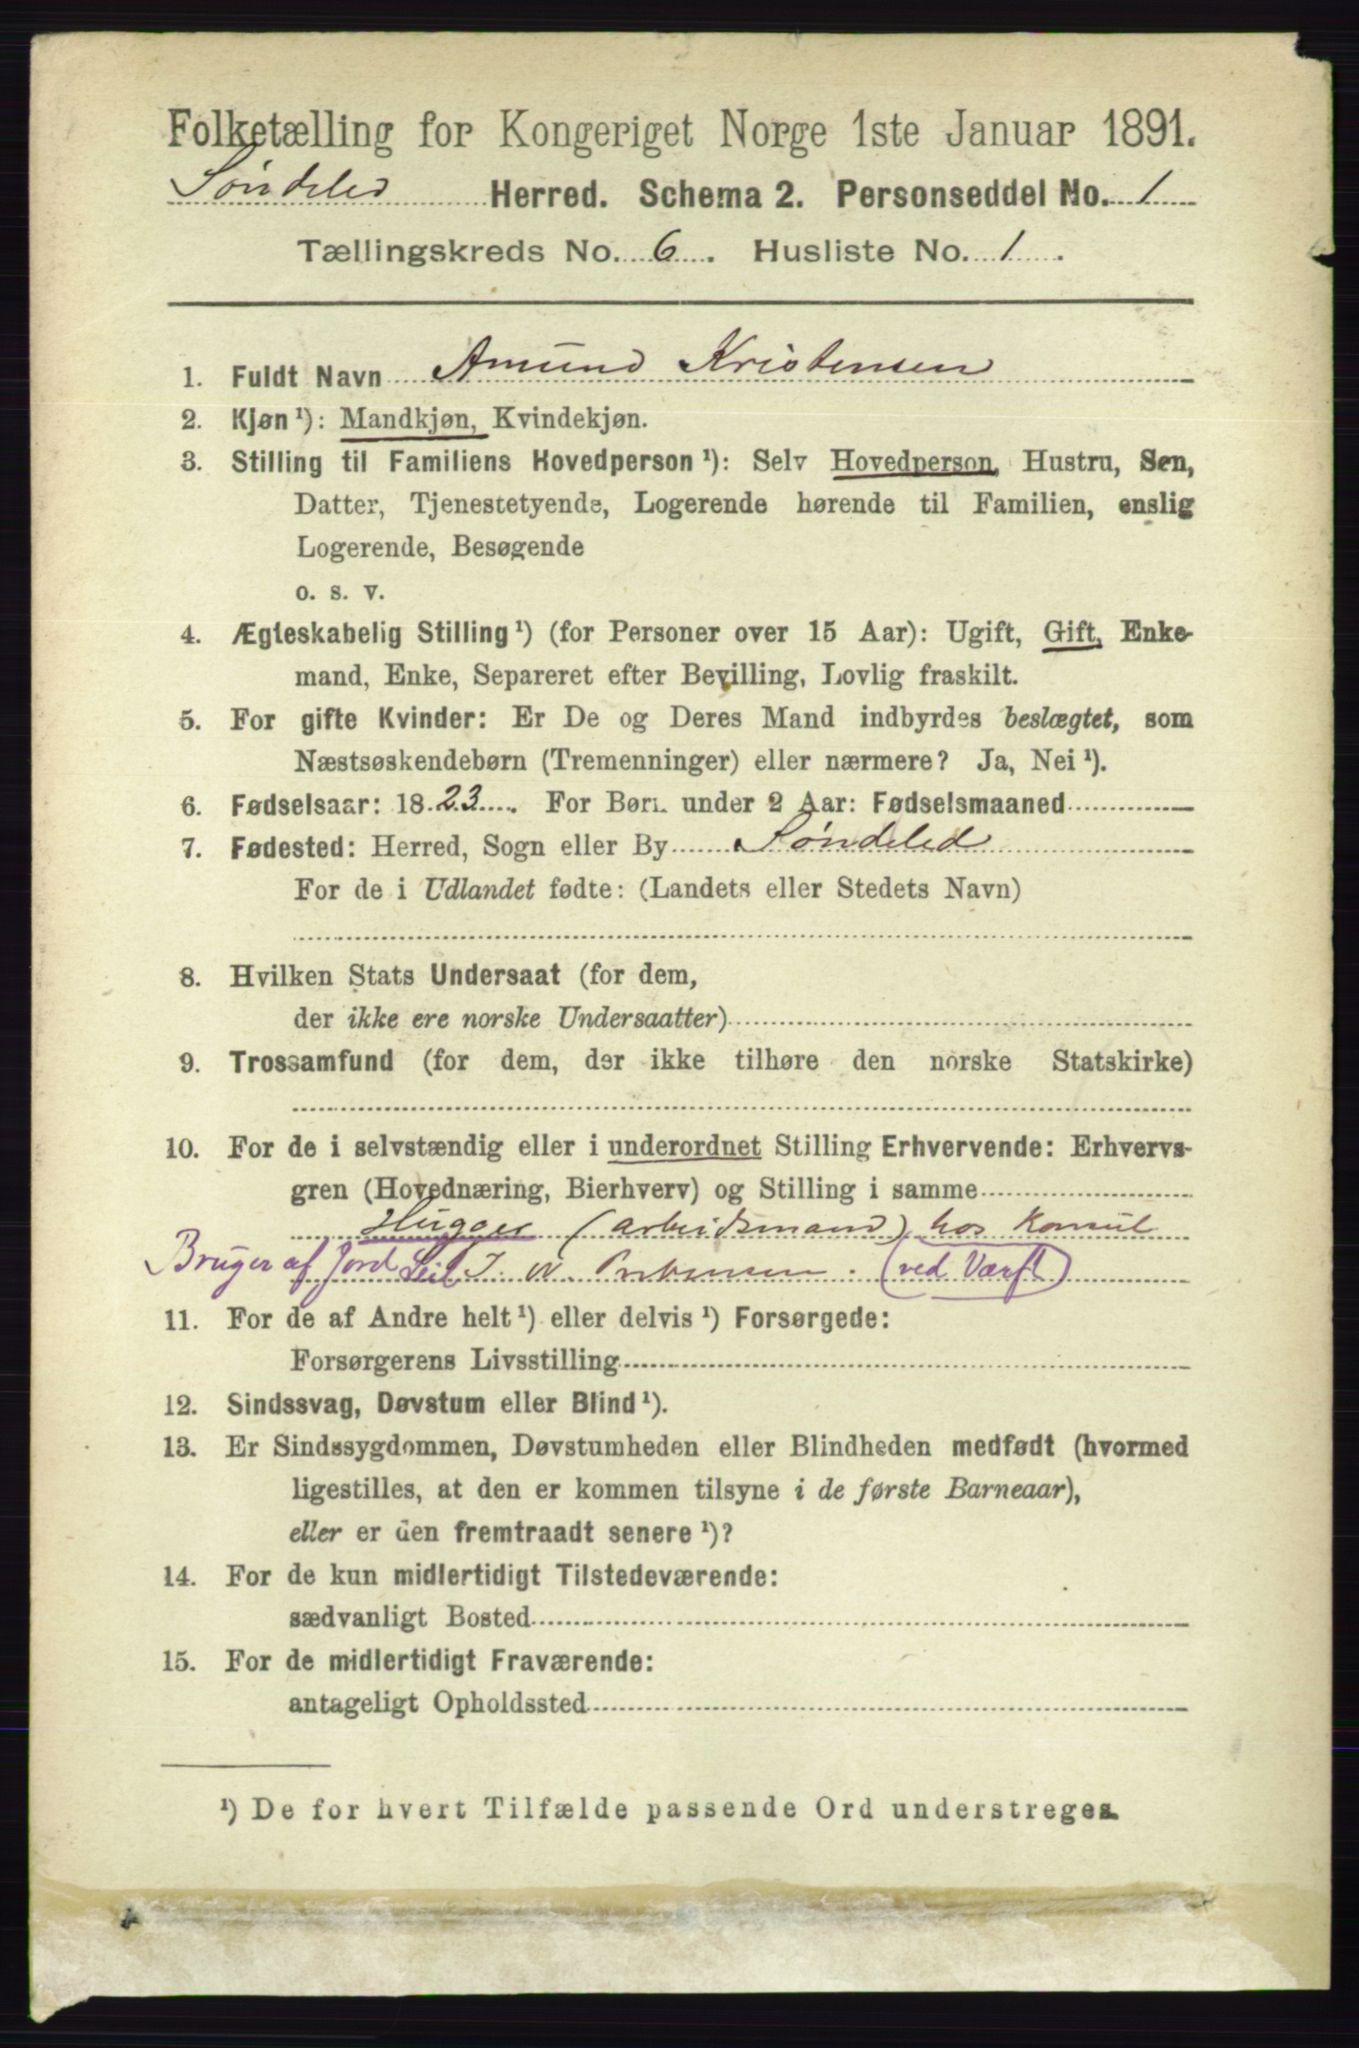 Folketælling for Kongeriget Norge 1ste Januar 1891.
Søndeled Herred. Schema 2. Personseddel No. 1
Tællingskreds No. 6. Husliste No. 1.
1. Fuldt Navn Amund Kristensen
2. Kjøn ¹): Mandkjøn, Kvindekjøn.
3. Stilling til Familiens Hovedperson ¹): Selv Hovedperson, Hustru, Søn,
Datter, Tjenestetyende, Logerende hørende til Familien, enslig
Logerende, Besøgende
o. s. v.
4. Ægteskabelig Stilling ¹) (for Personer over 15 Aar): Ugift, Gift, Enke-
mand, Enke, Separeret efter Bevilling, Lovlig fraskilt.
5. For gifte Kvinder: Er De og Deres Mand indbyrdes beslægtet, som
Næstsøskendebørn (Tremenninger) eller nærmere? Ja, Nei ¹).
6. Fødselsaar: 1823. For Børn under 2 Aar: Fødselsmaaned
7. Fødested: Herred, Sogn eller By Søndeled
For de i Udlandet fødte: (Landets eller Stedets Navn)
8. Hvilken Stats Undersaat (for dem,
der ikke ere norske Undersaatter)
9. Trossamfund (for dem, der ikke tilhøre den norske Statskirke)
10. For de i selvstændig eller i underordnet Stilling Erhvervende: Erhvervs-
gren (Hovednæring, Bierhverv) og Stilling i samme
Hugger (arbeidsmand) hos Konsul
Bruger af Jord I. W. Prebensen. (ved Værft)
11. For de af Andre helt ¹) eller delvis ¹) Forsørgede:
Forsørgerens Livsstilling
12. Sindssvag, Døvstum eller Blind ¹).
13. Er Sindssygdommen, Døvstumheden eller Blindheden medfødt (hvormed
ligestilles, at den er kommen tilsyne i de første Barneaar),
eller er den fremtraadt senere ¹)?
14. For de kun midlertidigt Tilstedeværende:
sædvanligt Bosted
15. For de midlertidigt Fraværende:
antageligt Opholdssted
¹) De for hvert Tilfælde passende Ord understreges.